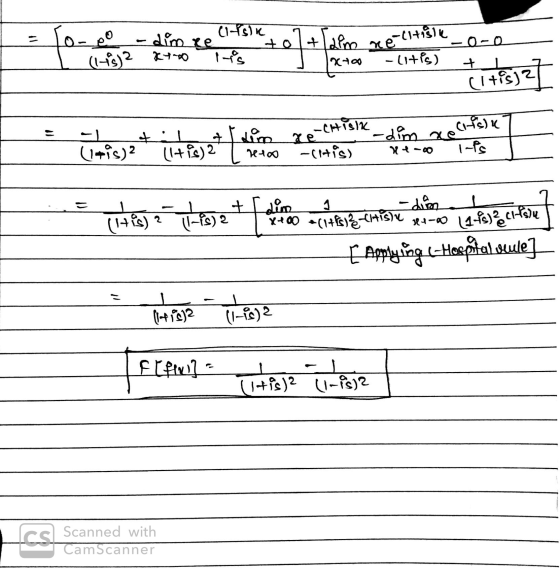 = [0 - e^0/(1-is)^2 - lim x→-∞ xe^(1-is)x/1-is + 0] + [lim x→∞ xe^-(1+is)x/-(1+is) - 0 - 0 + 1/(1+is)^2]
= -1/(1-is)^2 + 1/(1+is)^2 + [lim x→∞ xe^-(1+is)x/-(1+is) - lim x→-∞ xe^(1-is)x/1-is]
= 1/(1+is)^2 - 1/(1-is)^2 + [lim x→∞ 1/-(1+is)^2 e^-(1+is)x - lim x→-∞ 1/(1-is)^2 e^(1-is)x]
[Applying L-Hospital rule]
= 1/(1+is)^2 - 1/(1-is)^2
F[f(x)] = 1/(1+is)^2 - 1/(1-is)^2
CS Scanned with
CamScanner